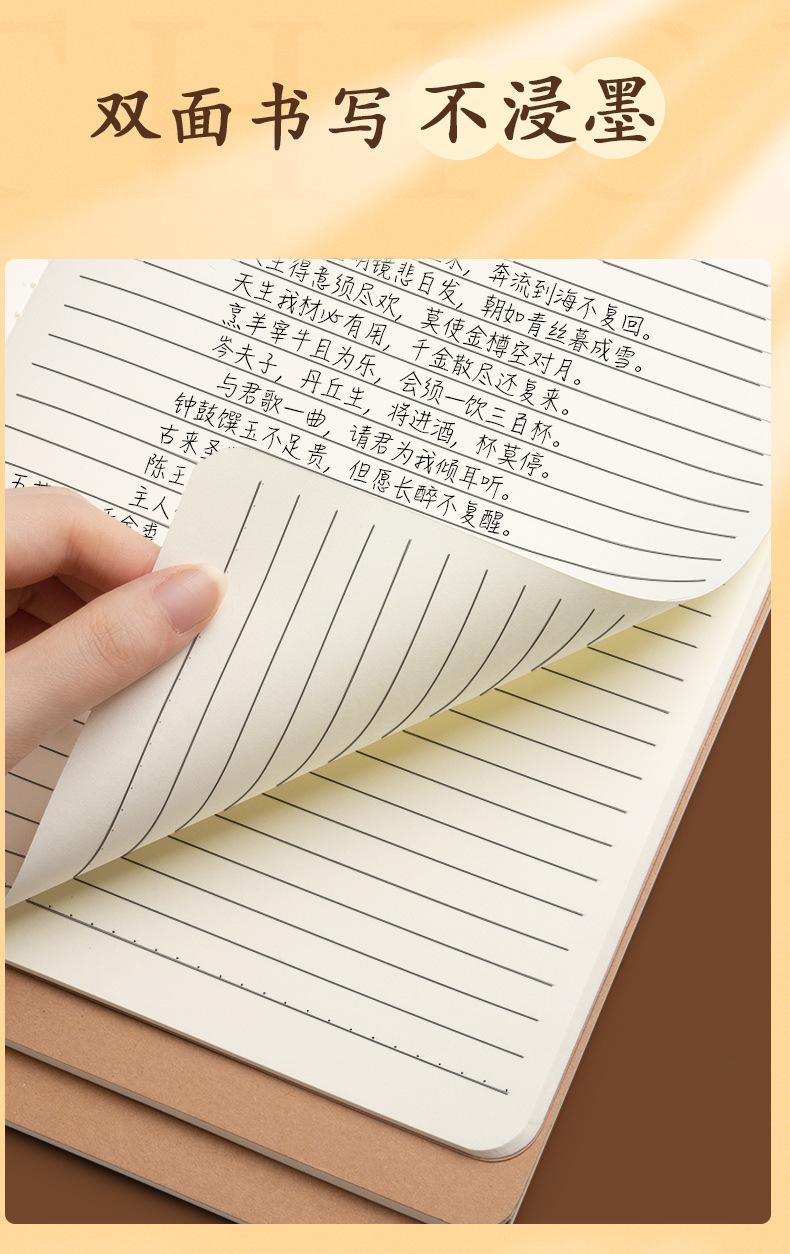 双面书写不浸墨
奔流到海不复回。
明镜悲白发,朝如青丝暮成雪。
生得意须尽欢,莫使金樽空对月。
天生我材必有用,千金散尽还复来。
烹羊宰牛且为乐,会须一饮三百杯。
岑夫子,丹丘生,将进酒,杯莫停。
与君歌一曲,请君为我倾耳听。
钟鼓馔玉不足贵,但愿长醉不复醒。
古来圣
陈王
主人
千金裘